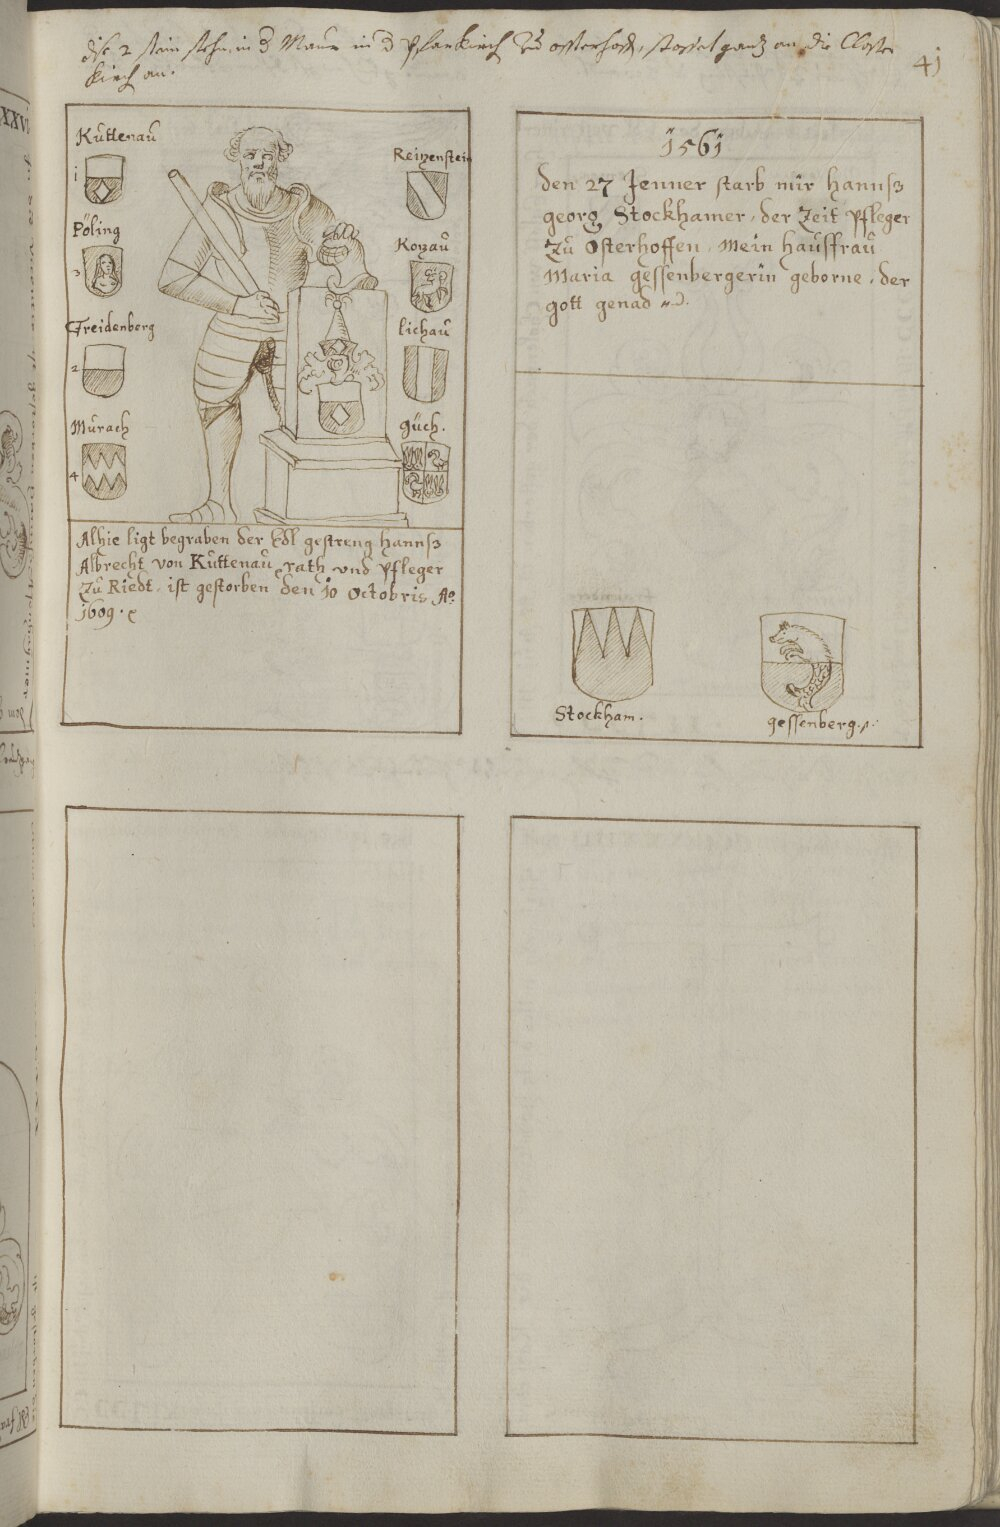 dise 2 stain stehn in d Maur in d Pfarkirch Zu osterhofen, stosset gantz an die Closter
kirch an.
41
Kuttenaŭ
1
Pöling
3
Freidenberg
2
Mŭrach
4
Reitzenstein
Kotzaŭ
lichaŭ
güch.
Alhie ligt begraben der Edl gestreng Hannß
Albrecht von Kŭttenaŭ rath vnd Pfleger
Zŭ Riedt, ist gestorben den 10 Octobris Ao
1609.
1561
den 27 Jenner starb mir Hannß
georg Stockhamer, der Zeit Pfleger
Zŭ Osterhoffen, Mein Haŭsfraŭ
Maria gessenbergerin geborne, der
gott genad
Stockham.
gessenberg.